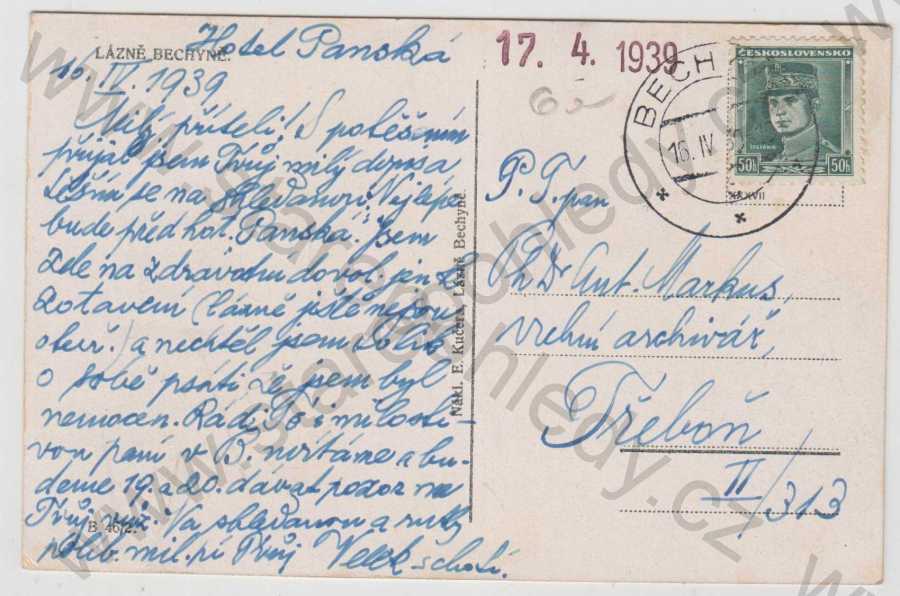 LÁZNĚ BECHYNĚ.
Hotel Panská
16. IV. 1939
Milý příteli! S potěšením
přijal jsem Tvůj milý dopis a
těším se na shledanou. Nejlépe
bude před hot. Panská. Jsem
zde na zdravotní dovol. jen k
zotavení (lázně ještě nejsou
) a nechtěl jsem
o sobě psáti že jsem byl
nemocen. Rádi Tě i milosti-
vou paní v B. uvítáme a bu-
deme 19. a 20. dávat pozor na
Tvůj vůz. Na shledanou a ruky
políb. mil. pí Tvůj s chotí.
B 46/2.
Nákl. E. Kučera, Lázně Bechyně.
17. 4. 1939
BECH
16. IV. 39
ČESKOSLOVENSKO
50h 50h
XXXVII
P. T. pan
PhDr Ant. Markus,
vrchní archivář,
Třeboň
II/313
www.starepohledy.cz